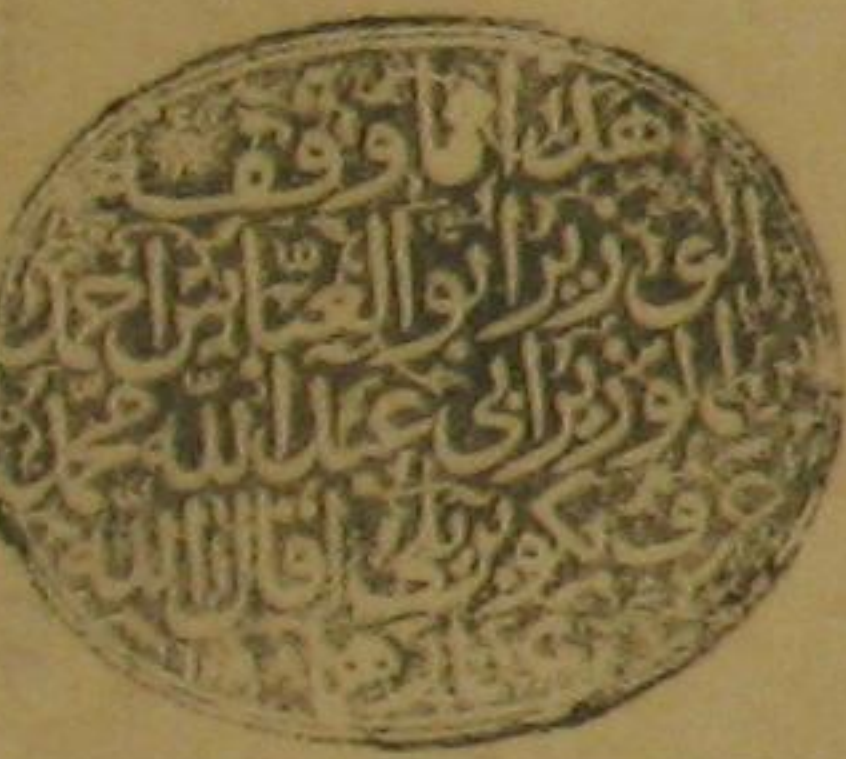 هذا ما وقف
الوزير ابو العباس احمد
ابن الوزير ابي عبد الله محمد
عرف بكوبريلي اقال الله
عثارهما